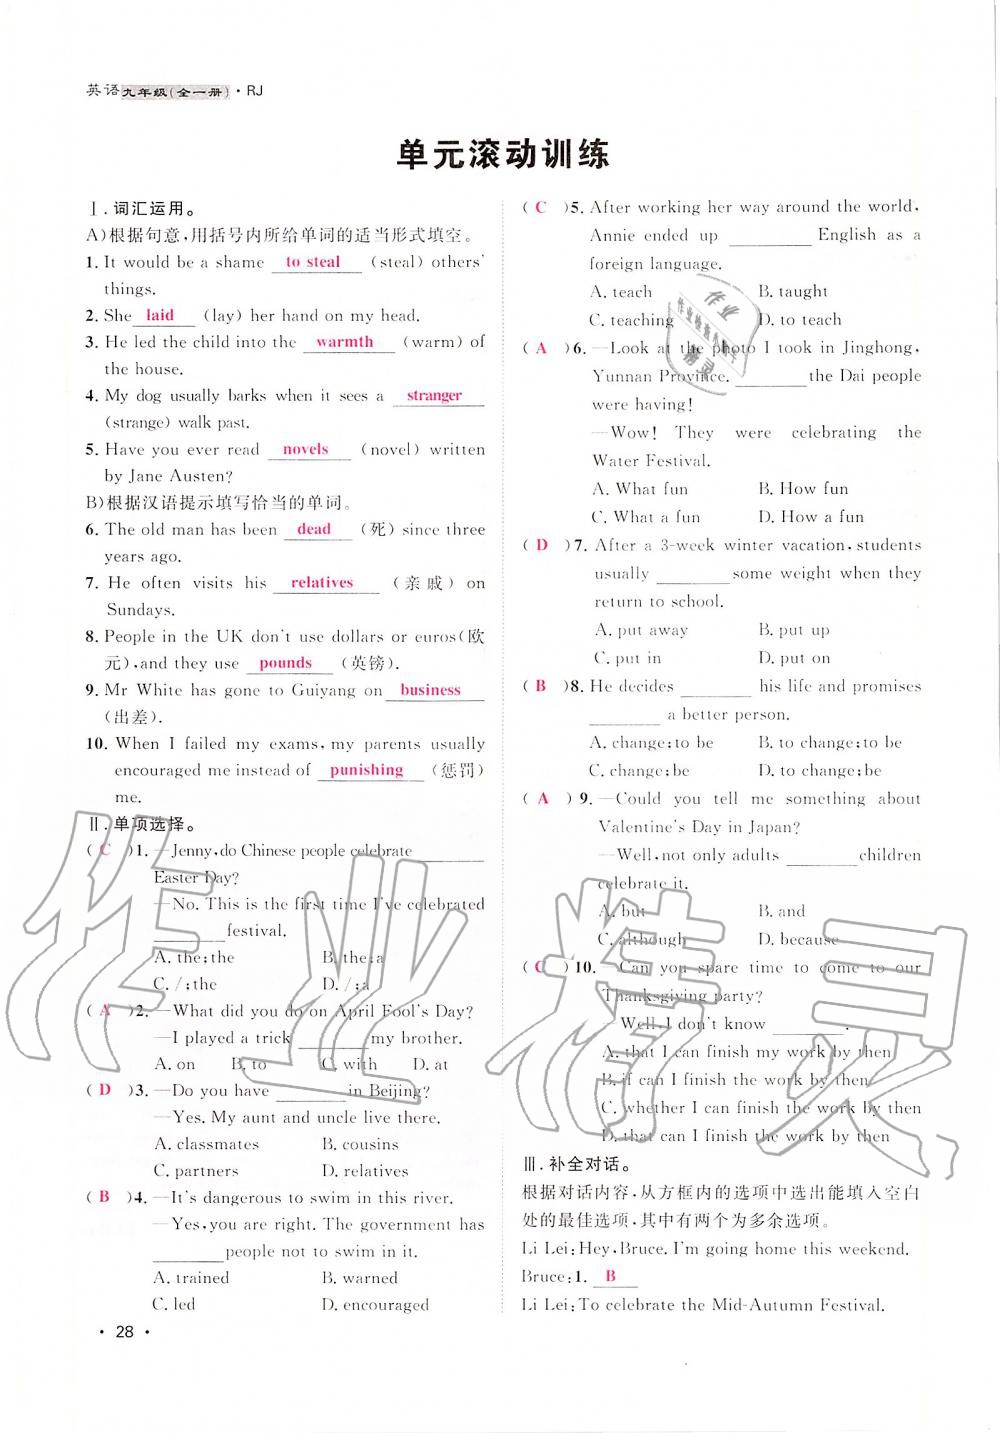 英语九年级(全一册)·RJ
单元滚动训练
Ⅰ.词汇运用。
A)根据句意,用括号内所给单词的适当形式填空。
1. It would be a shame to steal (steal) others'
things.
2. She laid (lay) her hand on my head.
3. He led the child into the warmth (warm) of
the house.
4. My dog usually barks when it sees a stranger
(strange) walk past.
5. Have you ever read novels (novel) written
by Jane Austen?
B)根据汉语提示填写恰当的单词。
6. The old man has been dead (死) since three
years ago.
7. He often visits his relatives (亲戚) on
Sundays.
8. People in the UK don't use dollars or euros(欧
元),and they use pounds (英镑).
9. Mr White has gone to Guiyang on business
(出差).
10. When I failed my exams,my parents usually
encouraged me instead of punishing (惩罚)
me.
Ⅱ.单项选择。
( C )1. —Jenny,do Chinese people celebrate ______
Easter Day?
—No. This is the first time I've celebrated
______ festival.
A. the;the B. the;a
C. /;the D. /;a
( A )2. —What did you do on April Fool's Day?
—I played a trick ______ my brother.
A. on B. to C. with D. at
( D )3. —Do you have ______ in Beijing?
—Yes. My aunt and uncle live there.
A. classmates B. cousins
C. partners D. relatives
( B )4. —It's dangerous to swim in this river.
—Yes,you are right. The government has
______ people not to swim in it.
A. trained B. warned
C. led D. encouraged
( C )5. After working her way around the world,
Annie ended up ______ English as a
foreign language.
A. teach B. taught
C. teaching D. to teach
( A )6. —Look at the photo I took in Jinghong,
Yunnan Province. ______ the Dai people
were having!
—Wow! They were celebrating the
Water Festival.
A. What fun B. How fun
C. What a fun D. How a fun
( D )7. After a 3-week winter vacation,students
usually ______ some weight when they
return to school.
A. put away B. put up
C. put in D. put on
( B )8. He decides ______ his life and promises
______ a better person.
A. change;to be B. to change;to be
C. change;be D. to change;be
( A )9. —Could you tell me something about
Valentine's Day in Japan?
—Well,not only adults ______ children
celebrate it.
A. but B. and
C. although D. because
( C )10. —Can you spare time to come to our
Thanksgiving party?
—Well,I don't know ______.
A. that I can finish my work by then
B. if can I finish the work by then
C. whether I can finish the work by then
D. that can I finish the work by then
Ⅲ.补全对话。
根据对话内容,从方框内的选项中选出能填入空白
处的最佳选项,其中有两个为多余选项。
Li Lei:Hey,Bruce. I'm going home this weekend.
Bruce:1. B
Li Lei:To celebrate the Mid-Autumn Festival.
· 28 ·
作业精灵
作业
作业检查小帮手
精灵